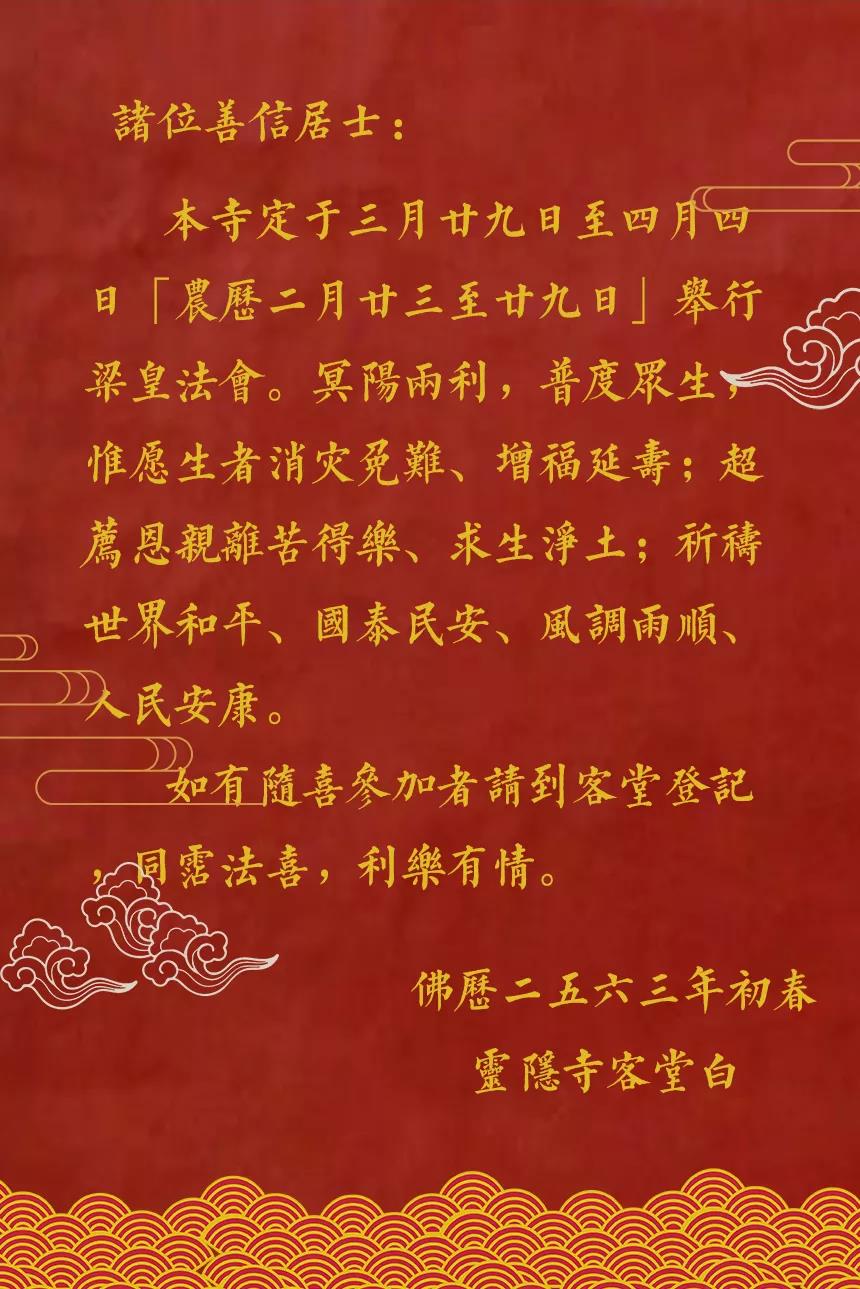 諸位善信居士：
本寺定于三月廿九日至四月四
日「農曆二月廿三至廿九日」舉行
梁皇法會。冥陽兩利，普度眾生，
惟愿生者消灾免難、增福延壽；超
薦恩親離苦得樂、求生淨土；祈禱
世界和平、國泰民安、風調雨順、
人民安康。
如有隨喜參加者請到客堂登記
，同霑法喜，利樂有情。
佛歷二五六三年初春
靈隱寺客堂白